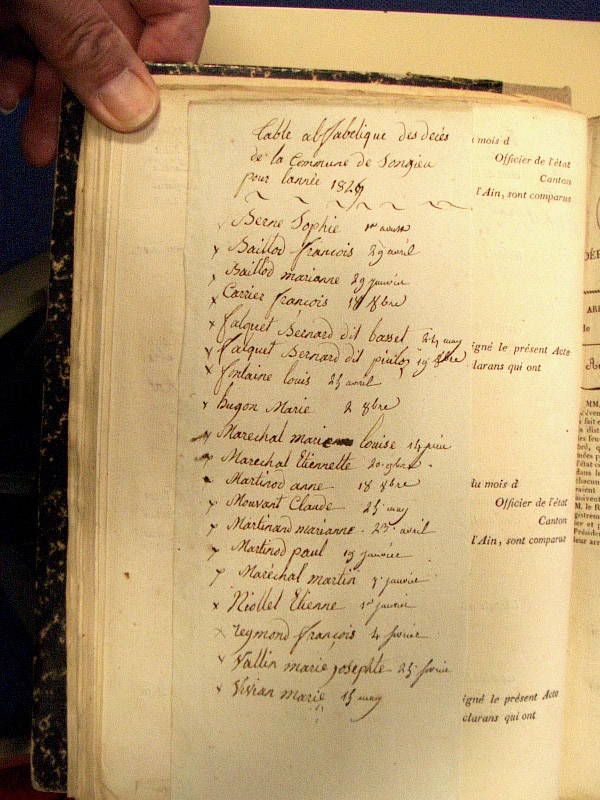 Table alffabetique des decés
de la Commune de Songieu
pour lannée 1829
Berne Sophie 1er aoust
x Baillod françois 29 avril
x Baillod marianne 29 janvier
x Carrier françois 18 8bre
x falquet Bernard dit basset 24 may
x falquet Bernard dit 19 8bre
x fontaine louis 25 avril
x hugon Marie 2 8bre
x Marechal marie louise 14
x Marechal Etiennette 20 9bre
x Martinod anne 18 8bre
x Mouvant Claude 25 may
x Martinand marianne 23 avril
x Martinod paul 19 janvier
x Maréchal martin janvier
x Niollet Etienne 1er janvier
x reymond françois 4 fevrier
x Vallin marie josephte 25 fevrie
x Vivian marie 15 may
mois d
Officier de l'état
Canton
l'Ain, sont comparus
igné le présent Acte
clarans qui ont
du mois d
Officier de l'état
Canton
l'Ain, sont comparus
igné le présent Acte
clarans qui ont